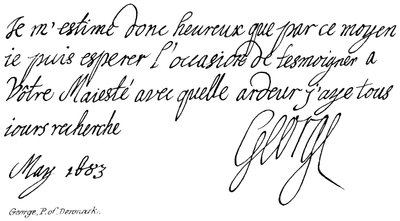 Je m'estime donc heureux que par ce moyen
ie puis esperer l'occasion de tesmoigner a
Vôtre Maiesté avec quelle ardeur j'aye tous
iours recherche
George
May 1683
George, P. of Denmark.